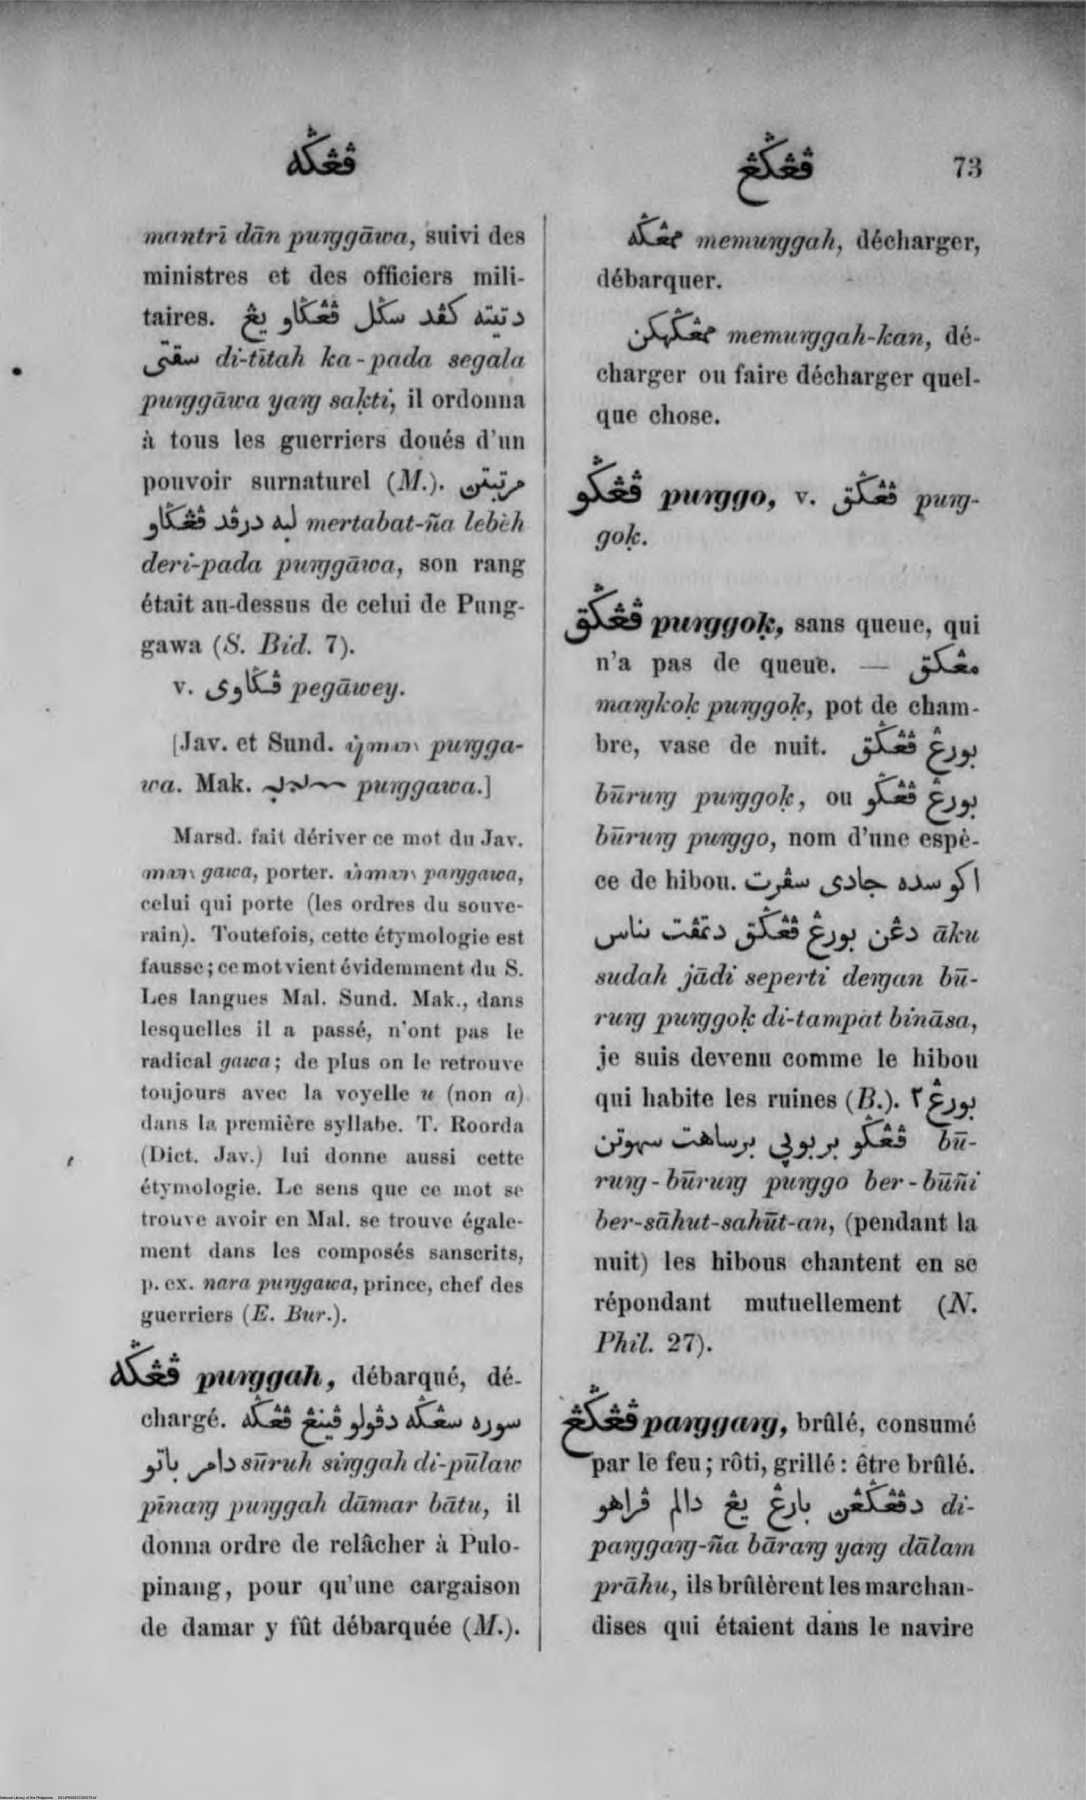 ڤڠݢه
ڤڠݢڠ 73
mantrī dān puŋggāwa, suivi des
ministres et des officiers mili-
taires. دتيته كڤد سݢل ڤڠݢاو يڠ
سقتى di-tītah ka-pada segala
puŋggāwa yaŋ saḳti, il ordonna
à tous les guerriers doués d'un
pouvoir surnaturel (M.). مرتبتن
لبه درڤد ڤڠݢاو mertabat-ña lebèh
deri-pada puŋggāwa, son rang
était au-dessus de celui de Pung-
gawa (S. Bid. 7).
v. ڤݢاوى pegāwey.
[Jav. et Sund. puŋgga-
wa. Mak. puŋggawa.]
Marsd. fait dériver ce mot du Jav.
gawa, porter. paŋggawa,
celui qui porte (les ordres du souve-
rain). Toutefois, cette étymologie est
fausse; ce mot vient évidemment du S.
Les langues Mal. Sund. Mak., dans
lesquelles il a passé, n'ont pas le
radical gawa; de plus on le retrouve
toujours avec la voyelle u (non a)
dans la première syllabe. T. Roorda
(Dict. Jav.) lui donne aussi cette
étymologie. Le sens que ce mot se
trouve avoir en Mal. se trouve égale-
ment dans les composés sanscrits,
p. ex. nara puŋgawa, prince, chef des
guerriers (E. Bur.).
ڤڠݢه puŋggah, débarqué, dé-
chargé. سوره سڠݢه دڤولو ڤينڠ ڤڠݢه
دامر باتو sūruh siŋggah di-pūlaw
pīnaŋ puŋggah dāmar bātu, il
donna ordre de relâcher à Pulo-
pinang, pour qu'une cargaison
de damar y fût débarquée (M.).
ممڠݢه memuŋggah, décharger,
débarquer.
ممڠݢهكن memuŋggah-kan, dé-
charger ou faire décharger quel-
que chose.
ڤڠݢو puŋggo, v. ڤڠݢق puŋg-
goḳ.
ڤڠݢق puŋggoḳ, sans queue, qui
n'a pas de queue. — مڠكق
maŋkoḳ puŋggoḳ, pot de cham-
bre, vase de nuit. بورڠ ڤڠݢق
būruŋ puŋggoḳ, ou بورڠ ڤڠݢو
būruŋ puŋggo, nom d'une espè-
ce de hibou. اكو سده جادى سڤرت
دڠن بورڠ ڤڠݢق دتمڤت بناس āku
sudah jādi seperti deŋan bū-
ruŋ puŋggoḳ di-tampat bināsa,
je suis devenu comme le hibou
qui habite les ruines (B.). بورڠ٢
ڤڠݢو بربوڽي برساهت سهوتن bū-
ruŋ-būruŋ puŋggo ber-būñi
ber-sāhut-sahūt-an, (pendant la
nuit) les hibous chantent en se
répondant mutuellement (N.
Phil. 27).
ڤڠݢڠ paŋggaŋ, brûlé, consumé
par le feu; rôti, grillé: être brûlé.
دڤڠݢڠن بارڠ يڠ دالم ڤراهو di-
paŋggaŋ-ña bāraŋ yaŋ dālam
prāhu, ils brûlèrent les marchan-
dises qui étaient dans le navire